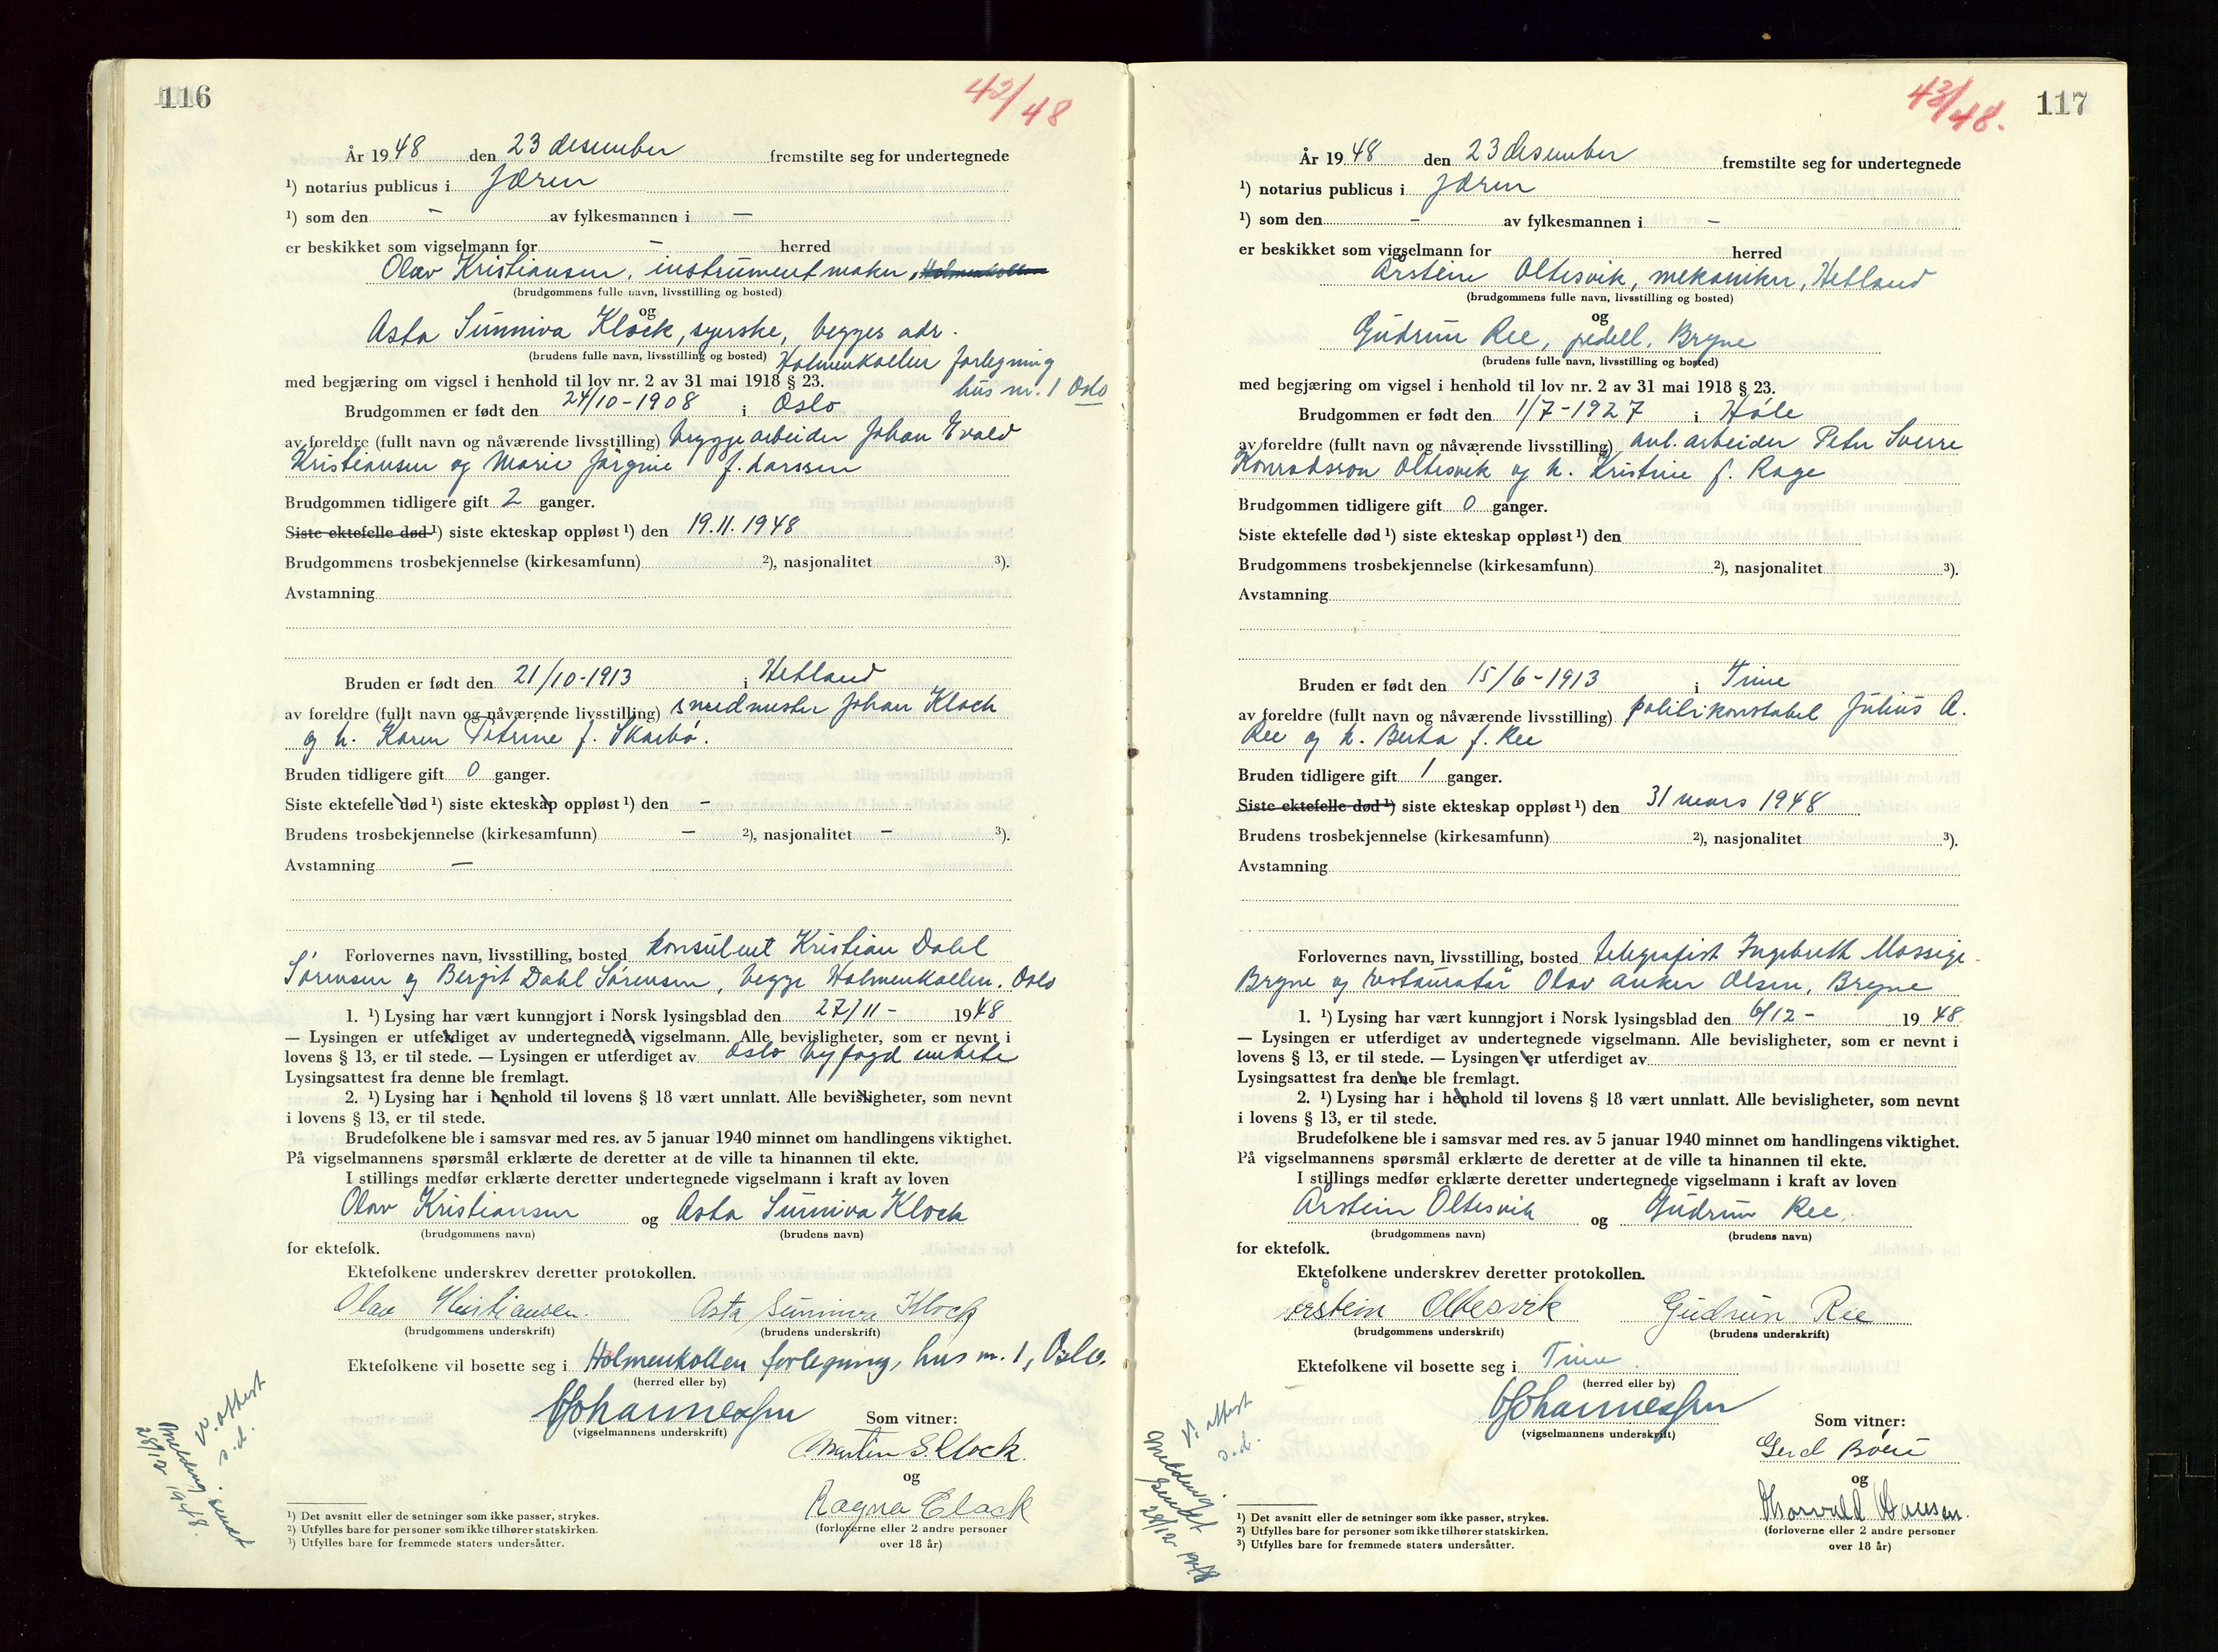 116
42/48
År 1948 den 23 desember fremstilte seg for undertegnede
¹) notarius publicus i Jæren
¹) som den - av fylkesmannen i —
er beskikket som vigselmann for — herred
Olav Kristiansen, instrumentmaker, Holmenkollen
(brudgommens fulle navn, livsstilling og bosted)
og
Asta Sunniva Klock, syerske, begges adr.
(brudens fulle navn, livsstilling og bosted) Holmenkollen forlegning
med begjæring om vigsel i henhold til lov nr. 2 av 31 mai 1918 § 23. hus nr. 1 Oslo
Brudgommen er født den 24/10-1908 i Oslo
av foreldre (fullt navn og nåværende livsstilling) byggearbeider Johan Evald
Kristiansen og Marie Jørgine f. Larssen
Brudgommen tidligere gift 2 ganger.
Siste ektefelle død ¹) siste ekteskap oppløst ¹) den 19.11.1948
Brudgommens trosbekjennelse (kirkesamfunn) ²), nasjonalitet ³).
Avstamning
Bruden er født den 21/10-1913 i Hetland
av foreldre (fullt navn og nåværende livsstilling) smedmester Johan Klock
og h. Karen Petrine f. Skarbø.
Bruden tidligere gift 0 ganger.
Siste ektefelle død ¹) siste ekteskap oppløst ¹) den -
Brudens trosbekjennelse (kirkesamfunn) — ²), nasjonalitet — ³).
Avstamning —
Forlovernes navn, livsstilling, bosted konsulent Kristian Dahl
Sørensen og Bergit Dahl Sørensen, begge Holmenkollen, Oslo
1. ¹) Lysing har vært kunngjort i Norsk lysingsblad den 27/11 - 1948
— Lysingen er utferdiget av undertegnede vigselmann. Alle bevisligheter, som er nevnt i
lovens § 13, er til stede. — Lysingen er utferdiget av Oslo byfogd embete
Lysingsattest fra denne ble fremlagt.
2. ¹) Lysing har i henhold til lovens § 18 vært unnlatt. Alle bevisligheter, som nevnt
i lovens § 13, er til stede.
Brudefolkene ble i samsvar med res. av 5 januar 1940 minnet om handlingens viktighet.
På vigselmannens spørsmål erklærte de deretter at de ville ta hinannen til ekte.
I stillings medfør erklærte deretter undertegnede vigselmann i kraft av loven
Olav Kristiansen og Asta Sunniva Klock
(brudgommens navn) (brudens navn)
for ektefolk.
Ektefolkene underskrev deretter protokollen.
Olav Kristiansen. Asta Sunniva Klock
(brudgommens underskrift) (brudens underskrift)
Ektefolkene vil bosette seg i Holmenkollen forlegning, hus nr. 1, Oslo.
(herred eller by)
Johannessen
(vigselmannens underskrift) Som vitner:
Martin S. Clock.
og
Ragna Clock
(forloverne eller 2 andre personer
over 18 år)
V. attest
s.d.
Melding sendt
28/12 1948.
¹) Det avsnitt eller de setninger som ikke passer, strykes.
²) Utfylles bare for personer som ikke tilhører statskirken.
³) Utfylles bare for fremmede staters undersåtter.
43/48.
117
År 1948 den 23 desember fremstilte seg for undertegnede
¹) notarius publicus i Jæren
¹) som den - av fylkesmannen i -
er beskikket som vigselmann for herred
Årstein Oltesvik, mekaniker, Hetland
(brudgommens fulle navn, livsstilling og bosted)
og
Gudrun Ree, pedell, Bryne
(brudens fulle navn, livsstilling og bosted)
med begjæring om vigsel i henhold til lov nr. 2 av 31 mai 1918 § 23.
Brudgommen er født den 1/7-1927 i Høle
av foreldre (fullt navn og nåværende livsstilling) anl. arbeider Peter Sverre
Konradsson Oltesvik og h. Kristine f. Rage
Brudgommen tidligere gift 0 ganger.
Siste ektefelle død ¹) siste ekteskap oppløst ¹) den
Brudgommens trosbekjennelse (kirkesamfunn) ²), nasjonalitet ³).
Avstamning
Bruden er født den 15/6-1913 i Time
av foreldre (fullt navn og nåværende livsstilling) politikonstabel Julius A.
Ree og h. Berta f. Ree
Bruden tidligere gift 1 ganger.
Siste ektefelle død ¹) siste ekteskap oppløst ¹) den 31 mars 1948
Brudens trosbekjennelse (kirkesamfunn) ²), nasjonalitet ³).
Avstamning
Forlovernes navn, livsstilling, bosted telegrafist Ingebreth Mossige
Bryne og restauratør Olav Anker Olsen, Bryne
1. ¹) Lysing har vært kunngjort i Norsk lysingsblad den 6/12 - 1948.
— Lysingen er utferdiget av undertegnede vigselmann. Alle bevisligheter, som er nevnt i
lovens § 13, er til stede. — Lysingen er utferdiget av
Lysingsattest fra denne ble fremlagt.
2. ¹) Lysing har i henhold til lovens § 18 vært unnlatt. Alle bevisligheter, som nevnt
i lovens § 13, er til stede.
Brudefolkene ble i samsvar med res. av 5 januar 1940 minnet om handlingens viktighet.
På vigselmannens spørsmål erklærte de deretter at de ville ta hinannen til ekte.
I stillings medfør erklærte deretter undertegnede vigselmann i kraft av loven
Årstein Oltesvik og Gudrun Ree
(brudgommens navn) (brudens navn)
for ektefolk.
Ektefolkene underskrev deretter protokollen.
Årstein Oltesvik Gudrun Ree
(brudgommens underskrift) (brudens underskrift)
Ektefolkene vil bosette seg i Time.
(herred eller by)
Johannessen
(vigselmannens underskrift) Som vitner:
Gerd Bøen
og
Thorvald Hansen.
(forloverne eller 2 andre personer
over 18 år)
V. attest
s.d.
Melding
sendt
28/12 1948
¹) Det avsnitt eller de setninger som ikke passer, strykes.
²) Utfylles bare for personer som ikke tilhører statskirken.
³) Utfylles bare for fremmede staters undersåtter.